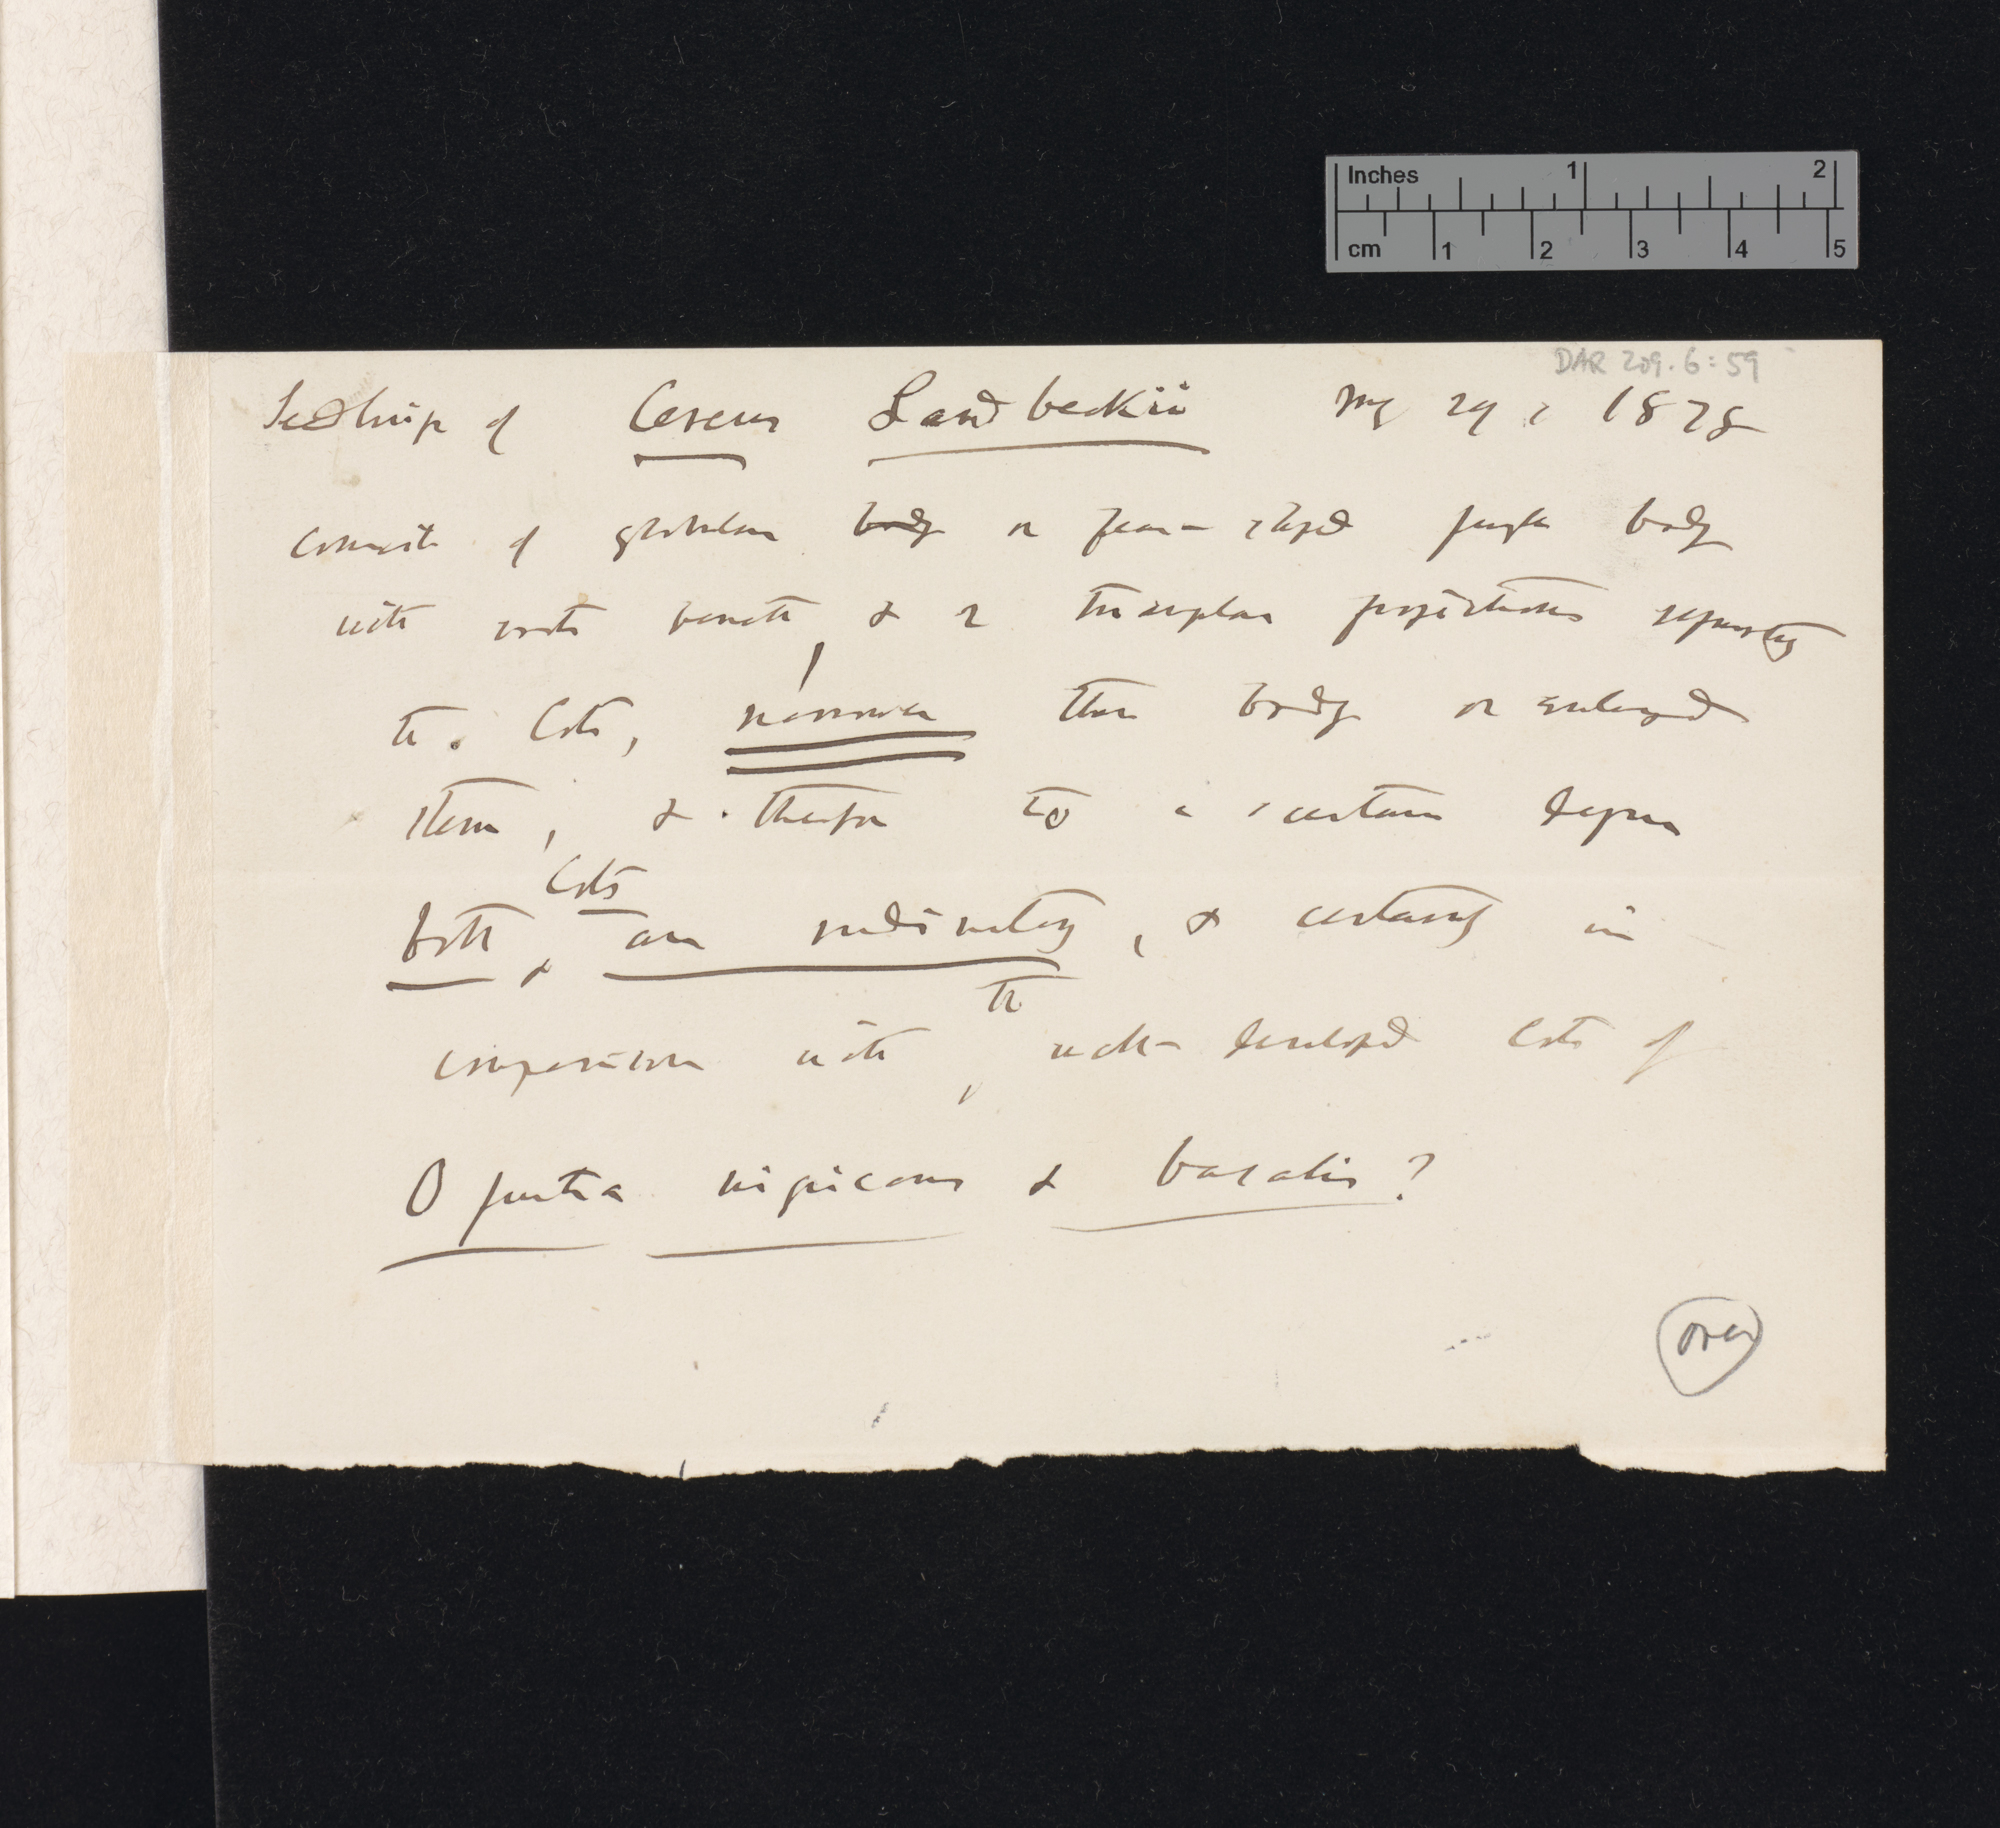 Inches 1 2
cm 1 2 3 4 5
DAR 209.6:59
Seedlings of Cereus Landbeckii May 29, 1878
consists of globular body or pear-shaped body
with roots beneath, & 2 triangular projections representing
the Cots, narrower than body or enlarged
stem, & therefore to a certain degree
Cots
both & are rudimentary, & certainly in
the
comparison with well-developed Cots of
Opuntia nigricans & basalis?
over